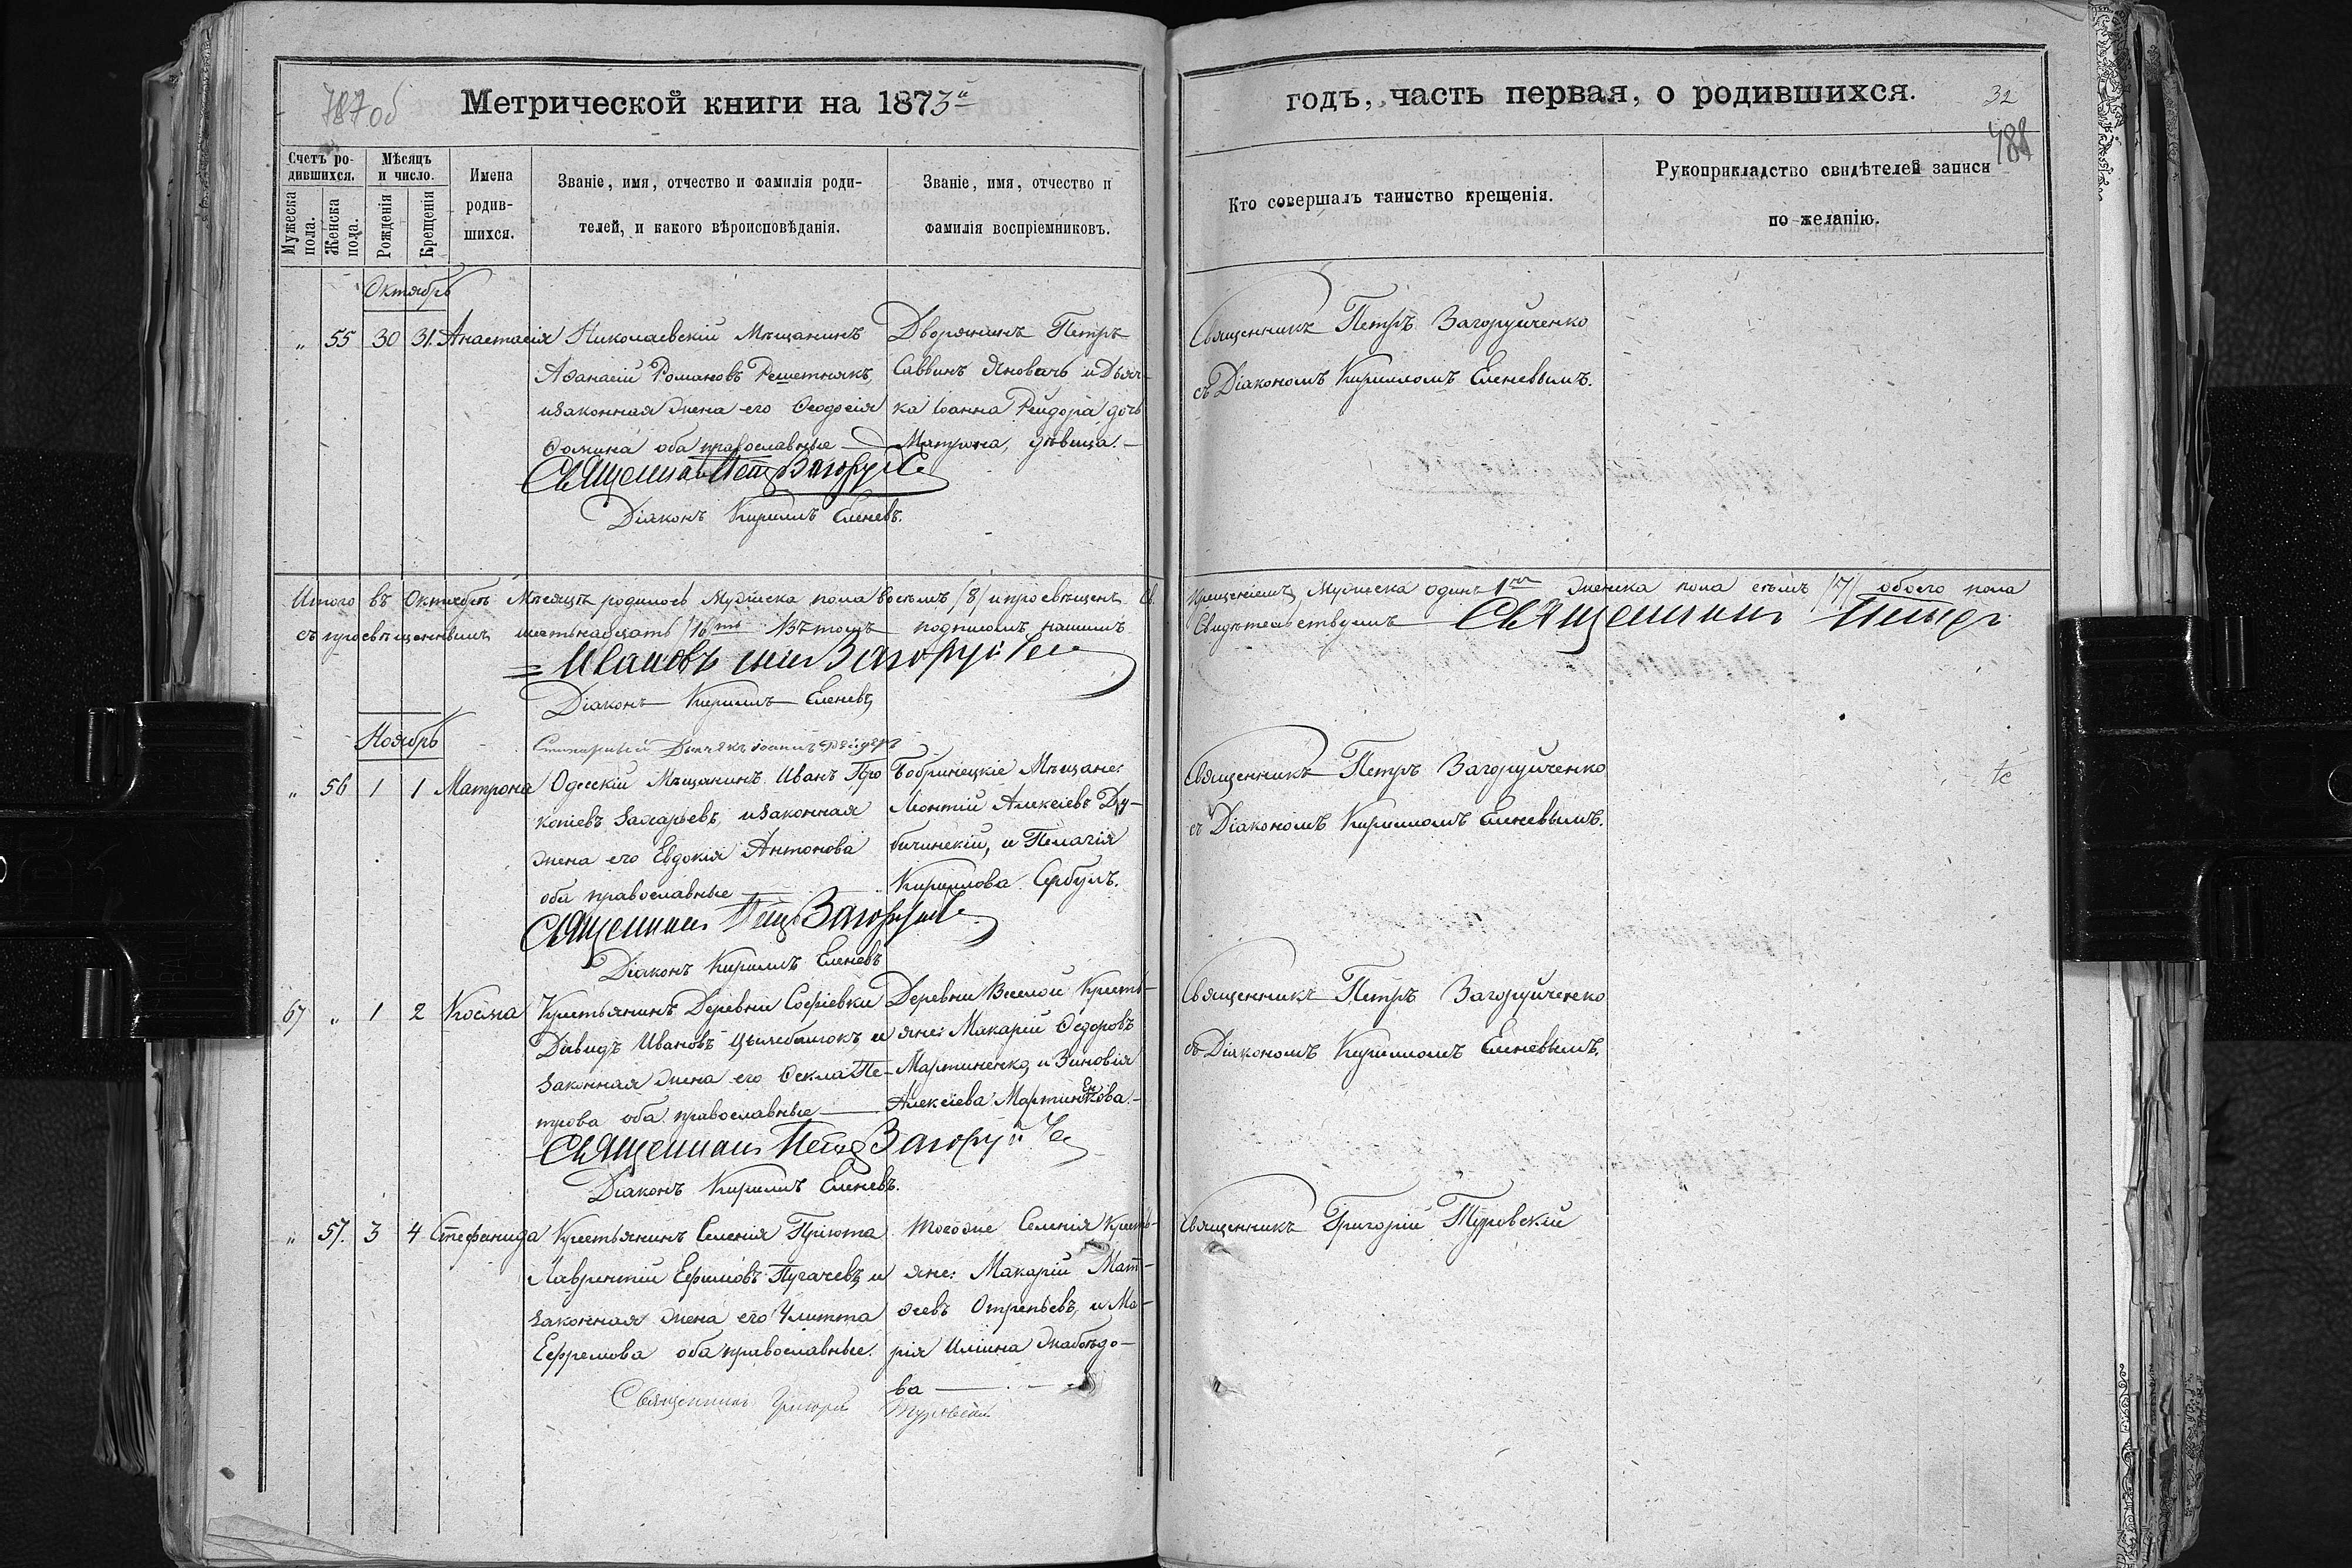 787 об
Метрической книги на 1873й
годъ, часть первая, о родившихся.
32
488
Счетъ ро-
дившихся.
Мужеска пола.
Женска пола.
Мѣсяцъ
и число.
Рожденія
Крещенія
Имена
родив-
шихся.
Званіе, имя, отчество и фамилія роди-
телей, и какого вѣроисповѣданія.
Званіе, имя, отчество и
фамилія воспріемниковъ.
Кто совершалъ таинство крещенія.
Рукоприкладство свидѣтелей записи
по желанію.
Октябрь
„ 55 30 31. Анастасія
Николаевскій Мѣщанинъ
Аѳанасій Романовъ Решетнякъ,
и законная жена его Ѳеодосія
Ѳомина оба православные —
Дворянинъ Петръ
Саввинъ Яновачь и Дьяч-
ка Іоанна Рейдора дочь
Матрона, дѣвица. —
Священникъ Петръ Загоруйченко
съ Діакономъ Кирилломъ Еленевымъ.
Священникъ Петръ Загоруйче
Діаконъ Кириллъ Еленевъ.
Итого въ Октябрѣ Мѣсяцѣ родилось Мужеска пола восемъ /8/ и просвѣщенъ Св.
Крещеніемъ, Мужеска одинъ 1 женска пола семь /7/ обоего пола
съ просвѣщеннымъ шестьнадцать /16ть Въ томъ подписомъ нашимъ
Свидѣтельствуемъ Священникъ Петръ
= Ивановъ Загоруйче
Діаконъ Кириллъ Еленевъ,
Дьячекъ Іоаннъ Рейдоръ
Ноябрь
„ 56 1 1 Матрона
Одесскій Мѣщанинъ Иванъ Про
копіевъ Захарьевъ, и законная
жена его Евдокія Антонова
оба православные —
Бобринецкіе Мѣщане:
Леонтій Алексіевъ Ду-
бичинскій, и Пелагія
Кириллова Сербулъ.
Священникъ Петръ Загоруйченко
съ Діакономъ Кирилломъ Еленевымъ.
Священникъ Петръ Загоруйче
Діаконъ Кириллъ Еленевъ
67 „ 1 2 Косма
Крестьянинъ Деревни Софіевки
Давидъ Ивановъ Цымбалюкъ, и
законная жена его Ѳекла Пе-
трова оба православные —
Деревни Веселой Кресть-
яне: Макарій Ѳедоровъ
Мартиненко, и Зиновія
Алексіева Мартиненкова. —
Священникъ Петръ Загоруйченко
съ Діакономъ Кирилломъ Еленевымъ.
Священникъ Петръ Загоруйче
Діаконъ Кириллъ Еленевъ.
„ 57. 3 4 Стефанида
Крестьянинъ Селенія Пріюта
Лаврентій Ефимовъ Пугачевъ, и
законная жена его Улитта
Ефремова оба православные.
Тогоже Селенія Кресть-
яне: Макарій Мат-
ѳеевъ Отрепьевъ, и Ма-
рія Иліина Жабоѣдо-
ва —
Священникъ Григорій Туровскій
Священникъ Григорій Туровскій